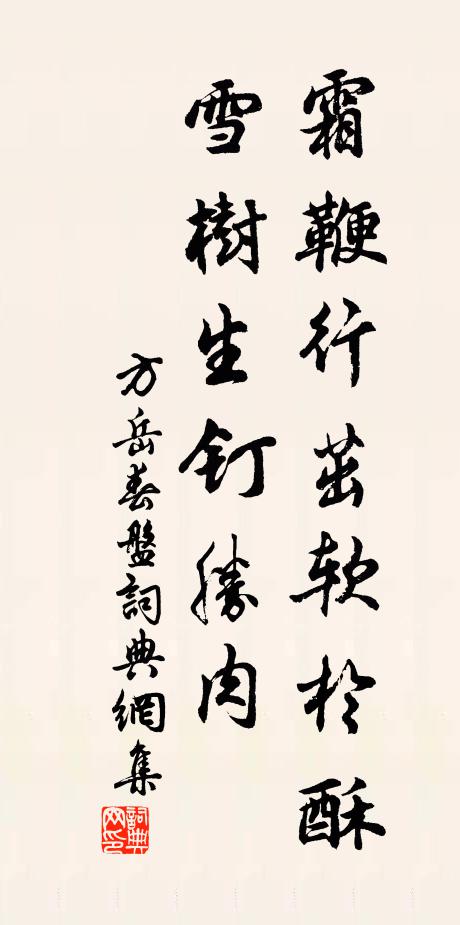 霜鞭行茁軟於酥
雪樹生釘勝肉
方岳春盤詞典網集
詞典網印